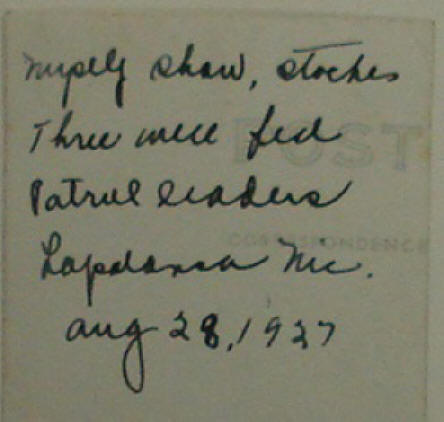 myself shaw, stoches
Three well fed
Patrol leaders
aug 28, 1927
POST
CORRESPONDENCE